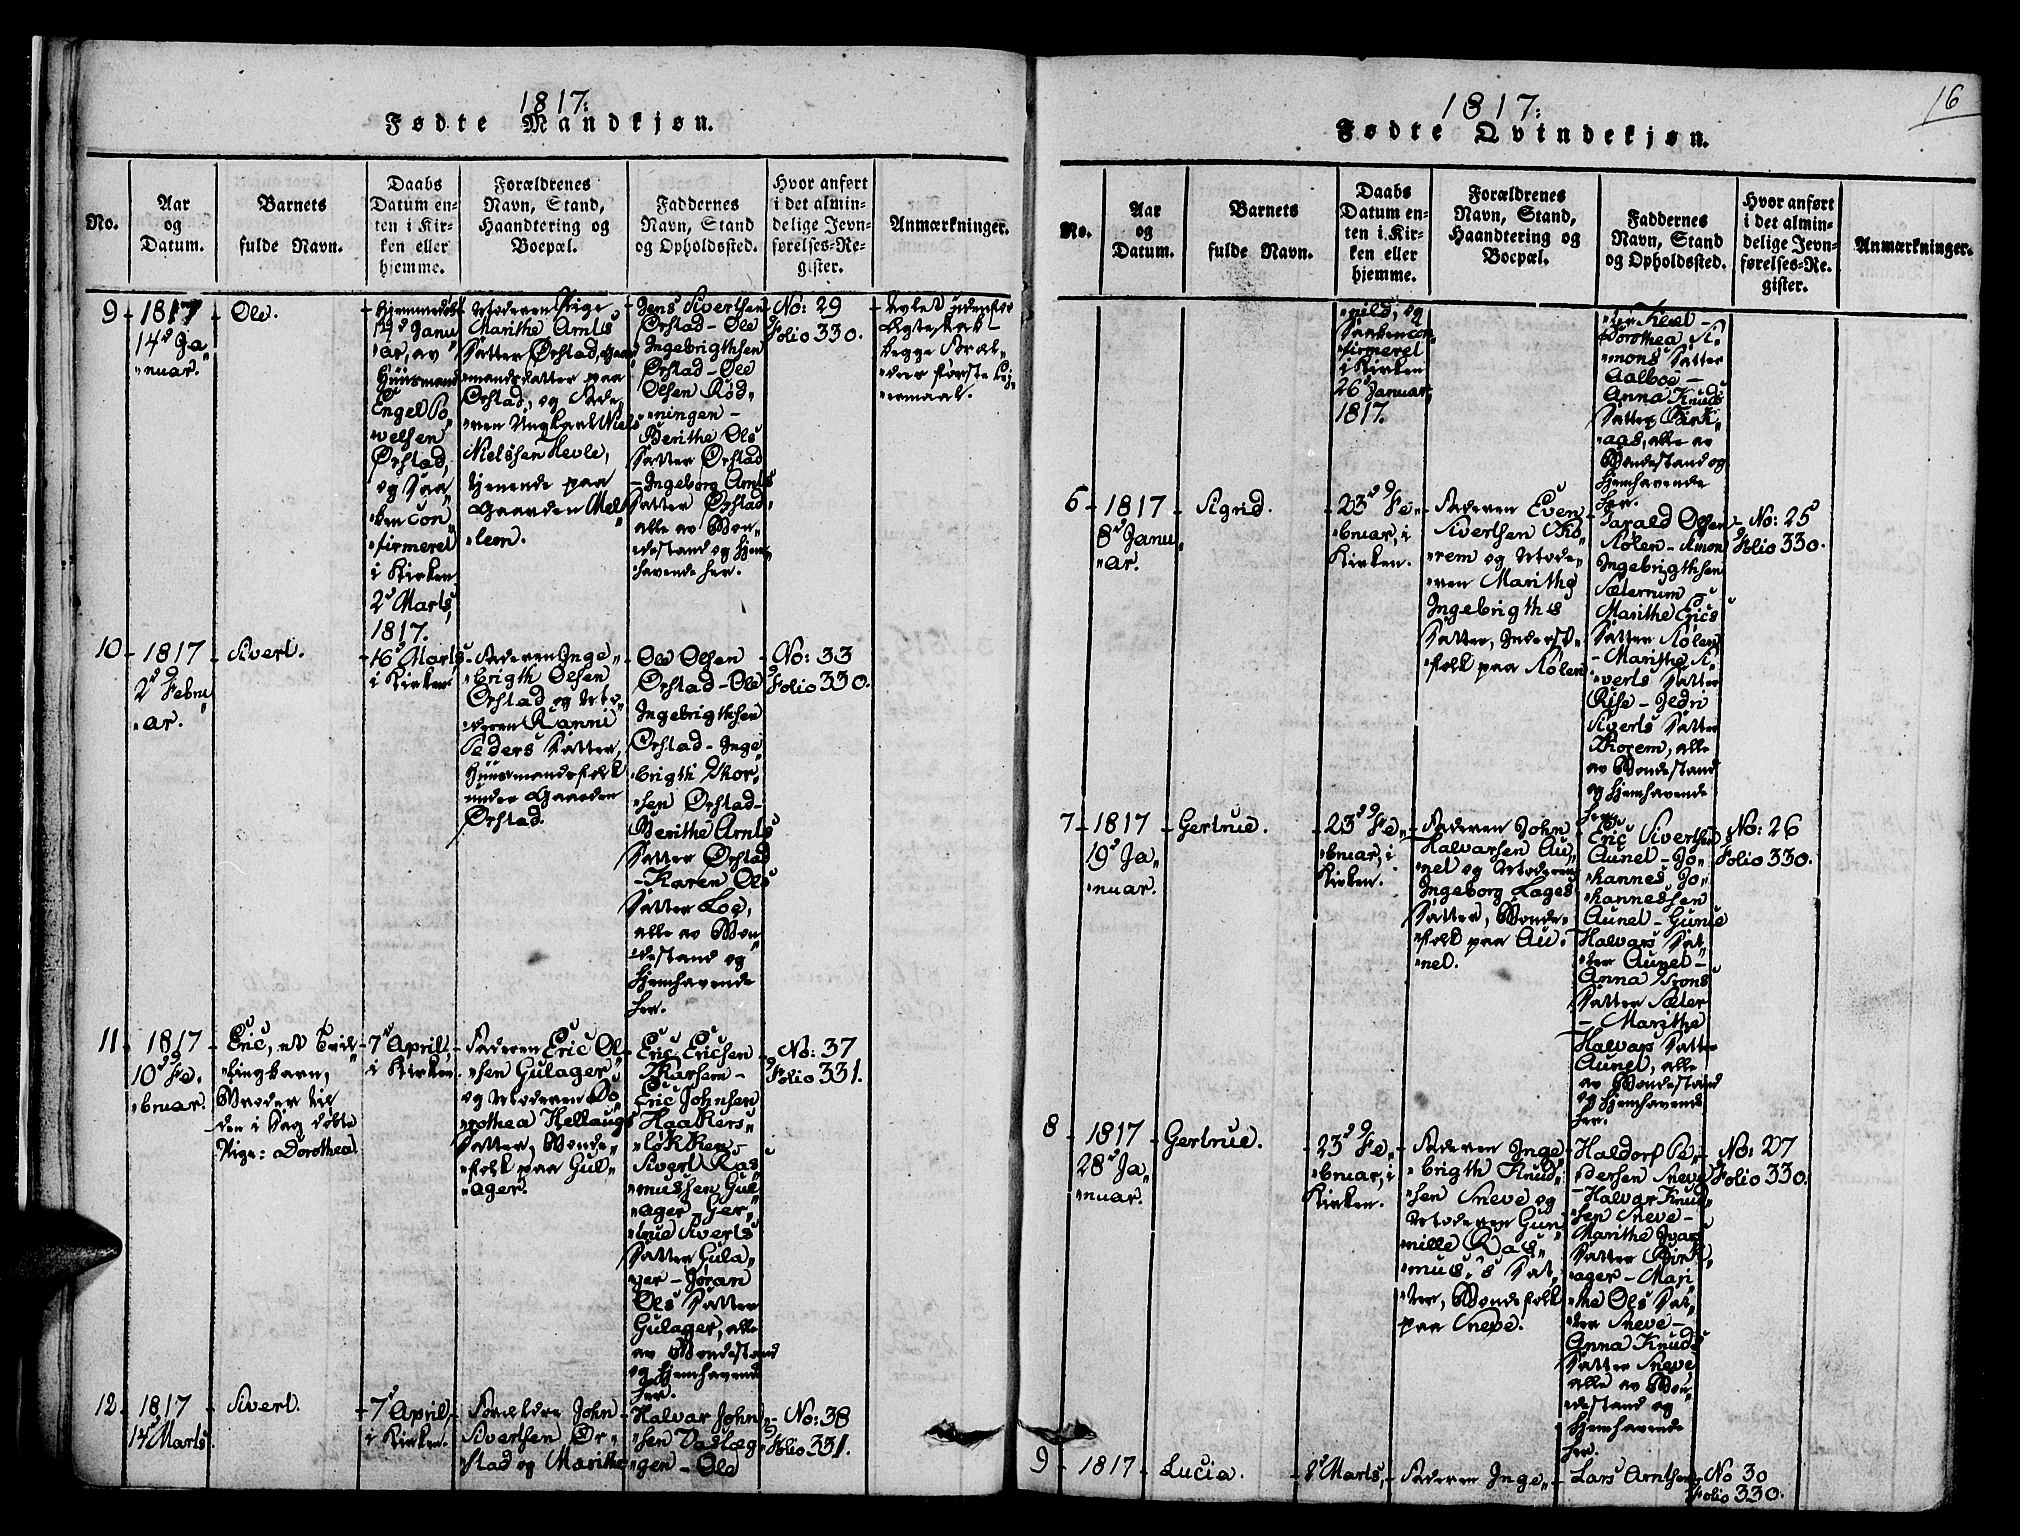 1817:
Fødte Mandkjøn.
No.
Aar
og
Datum.
Barnets
fulde Navn.
Daabs
Datum en-
ten i Kir-
ken eller
hjemme.
Forældrenes
Navn, Stand,
Haandtering og
Boepæl.
Faddernes
Navn, Stand
og Opholdssted.
Hvor anført
i det almin-
delige Jevn-
førelses-Re-
gister.
Anmærkninger.
9 - 1817
14d Ja
nuar.
Ole.
Hjemmedøbt
19d Janu
ar, av
Huusmand
Engel Po
welsen
Ørstad,
og Daa
ben con
firmeret
i Kirken
2d Marts,
1817.
Moderen Pige
Marithe Arnts
Datter Ørstad, Huus
mandsdatter paa
Ørstad, og Fade
ren Ungkarl Niels
Nielssen Hevle,
tjenende paa
Gaarden Mel
leem.
Jens Sivertsen
Ørstad - Ole
Ingebrigthsen
Ørstad - Ole
Olsen Rød
ningen -
Berithe Ols
Datter Ørstad
- Ingeborg Arnts
Datter Ørstad,
alle av Bon
destand og hjem
havende her.
No: 29
Folio 330.
Avlet udenfor
Ægteskab -
begge Foræl
dres første Lej
ermaal.
10 - 1817
2d Febru
ar.
Sivert.
16d Marts
i Kirken.
Faderen Inge
brigth Olsen
Ørstad og Mo
deren Ranni
Peders Datter,
Huusmandsfolk
under Gaarden
Ørstad.
Ole Olsen
Ørstad - Ole
Ingebrigthsen
Ørstad - Inge
brigth Thor
sen Ørstad -
Berithe Arnts
Datter Ørstad
- Karen Ols
Datter Loe,
alle av Bon
destand og
hjemhavende
her.
No: 33
Folio 330.
11 - 1817
10d Fe
bruar.
Eric, et Tvil
lingbarn,
Broder til
den i Dag døbte
Pige: Dorothea.
7d April,
i Kirken.
Faderen Eric Ol
sen Gulager
og Moderen Do
rothea Hellaugs
Datter, Bonde
folk paa Gul
ager.
Eric Ericsen
Karsem -
Eric Johnsen
Haakers
løkken -
Sivert Ras
mussen Gul
ager - Ger
true Siverts
Datter Gula
ger - Jøran
Ols Datter
Gulager, alle
av Bondestand
og hjemhavende
her.
No: 37
Folio 331.
12 - 1817
14d Marts.
Sivert.
7d April,
i Kirken.
Forældre John
Sivertsen Ør
stad og Marithe
Halvar John
sen Vadlæg
gen - Ole
No: 38
Folio 331.
16
1817:
Fødte Qvindekjøn.
No.
Aar
og
Datum.
Barnets
fulde Navn.
Daabs
Datum en-
ten i Kir-
ken eller
hjemme.
Forældrenes
Navn, Stand,
Haandtering og
Boepæl.
Faddernes
Navn, Stand
og Opholdssted.
Hvor anført
i det almin-
delige Jevn-
førelses-Re-
gister.
Anmærkninger.
og
Daaben con
firmeret
i Kirken
26d Januar,
1817.
Dorothea Si
mons Datter
Aalboe -
Anna Knuds
Datter Birk
aas, alle av
Bondestand og
hjemhavende
her.
6 - 1817
8d Janu
ar.
Sigrid.
23d Fe
bruar, i
Kirken.
Faderen Even
Sivertsen Tho
rem og Mode
ren Marithe
Ingebrigths
Datter, Inderst
folk paa Aolen
Jarald Olsen
Aolen - Simon
Ingebrigthsen
Sæternum -
Marithe Erics
Datter Aolen
- Marithe Si
verts Datter
Rise - Jedri
Siverts Datter
Thorem, alle
av Bondestand
og hjemhavende
her.
No: 25
Folio 330.
7 - 1817
19d Ja
nuar.
Gertrue.
23d Fe
bruar, i
Kirken.
Faderen John
Halvarsen Au
nel og Moderen
Ingeborg Lages
Datter, Bonde
folk paa Au
nel.
Eric Sivertsen
Aunel - Jo
hannes Jo
hannessen
Aunel - Gunie
Halvars Dat
ter Aunel -
Anna Trons
Datter Sæter
- Marithe
Halvars Datter
Aunel, alle
av Bondestand
og hjemhavende
her.
No: 26
Folio 330.
8 - 1817
28d Ja
nuar.
Gertrue.
23d Fe
bruar, i
Kirken.
Faderen Inge
brigth Knud
sen Sneve og
Moderen Gun
nille Ras
mus's Dat
ter, Bondefolk
paa Sneve.
Haldorf Pe
dersen Sneve
- Halvar Knud
sen Sneve -
Marithe Ivars
Datter Birk
ager - Mari
the Ols Dat
ter Sneve -
Anna Knuds
Datter Sneve
alle av Bon
destand og
hjemhavende
her.
No: 27
Folio 330.
9 - 1817
Lucia.
2d Marts,
Faderen Inge
Lars Arntsen
No 30
Folio 330.